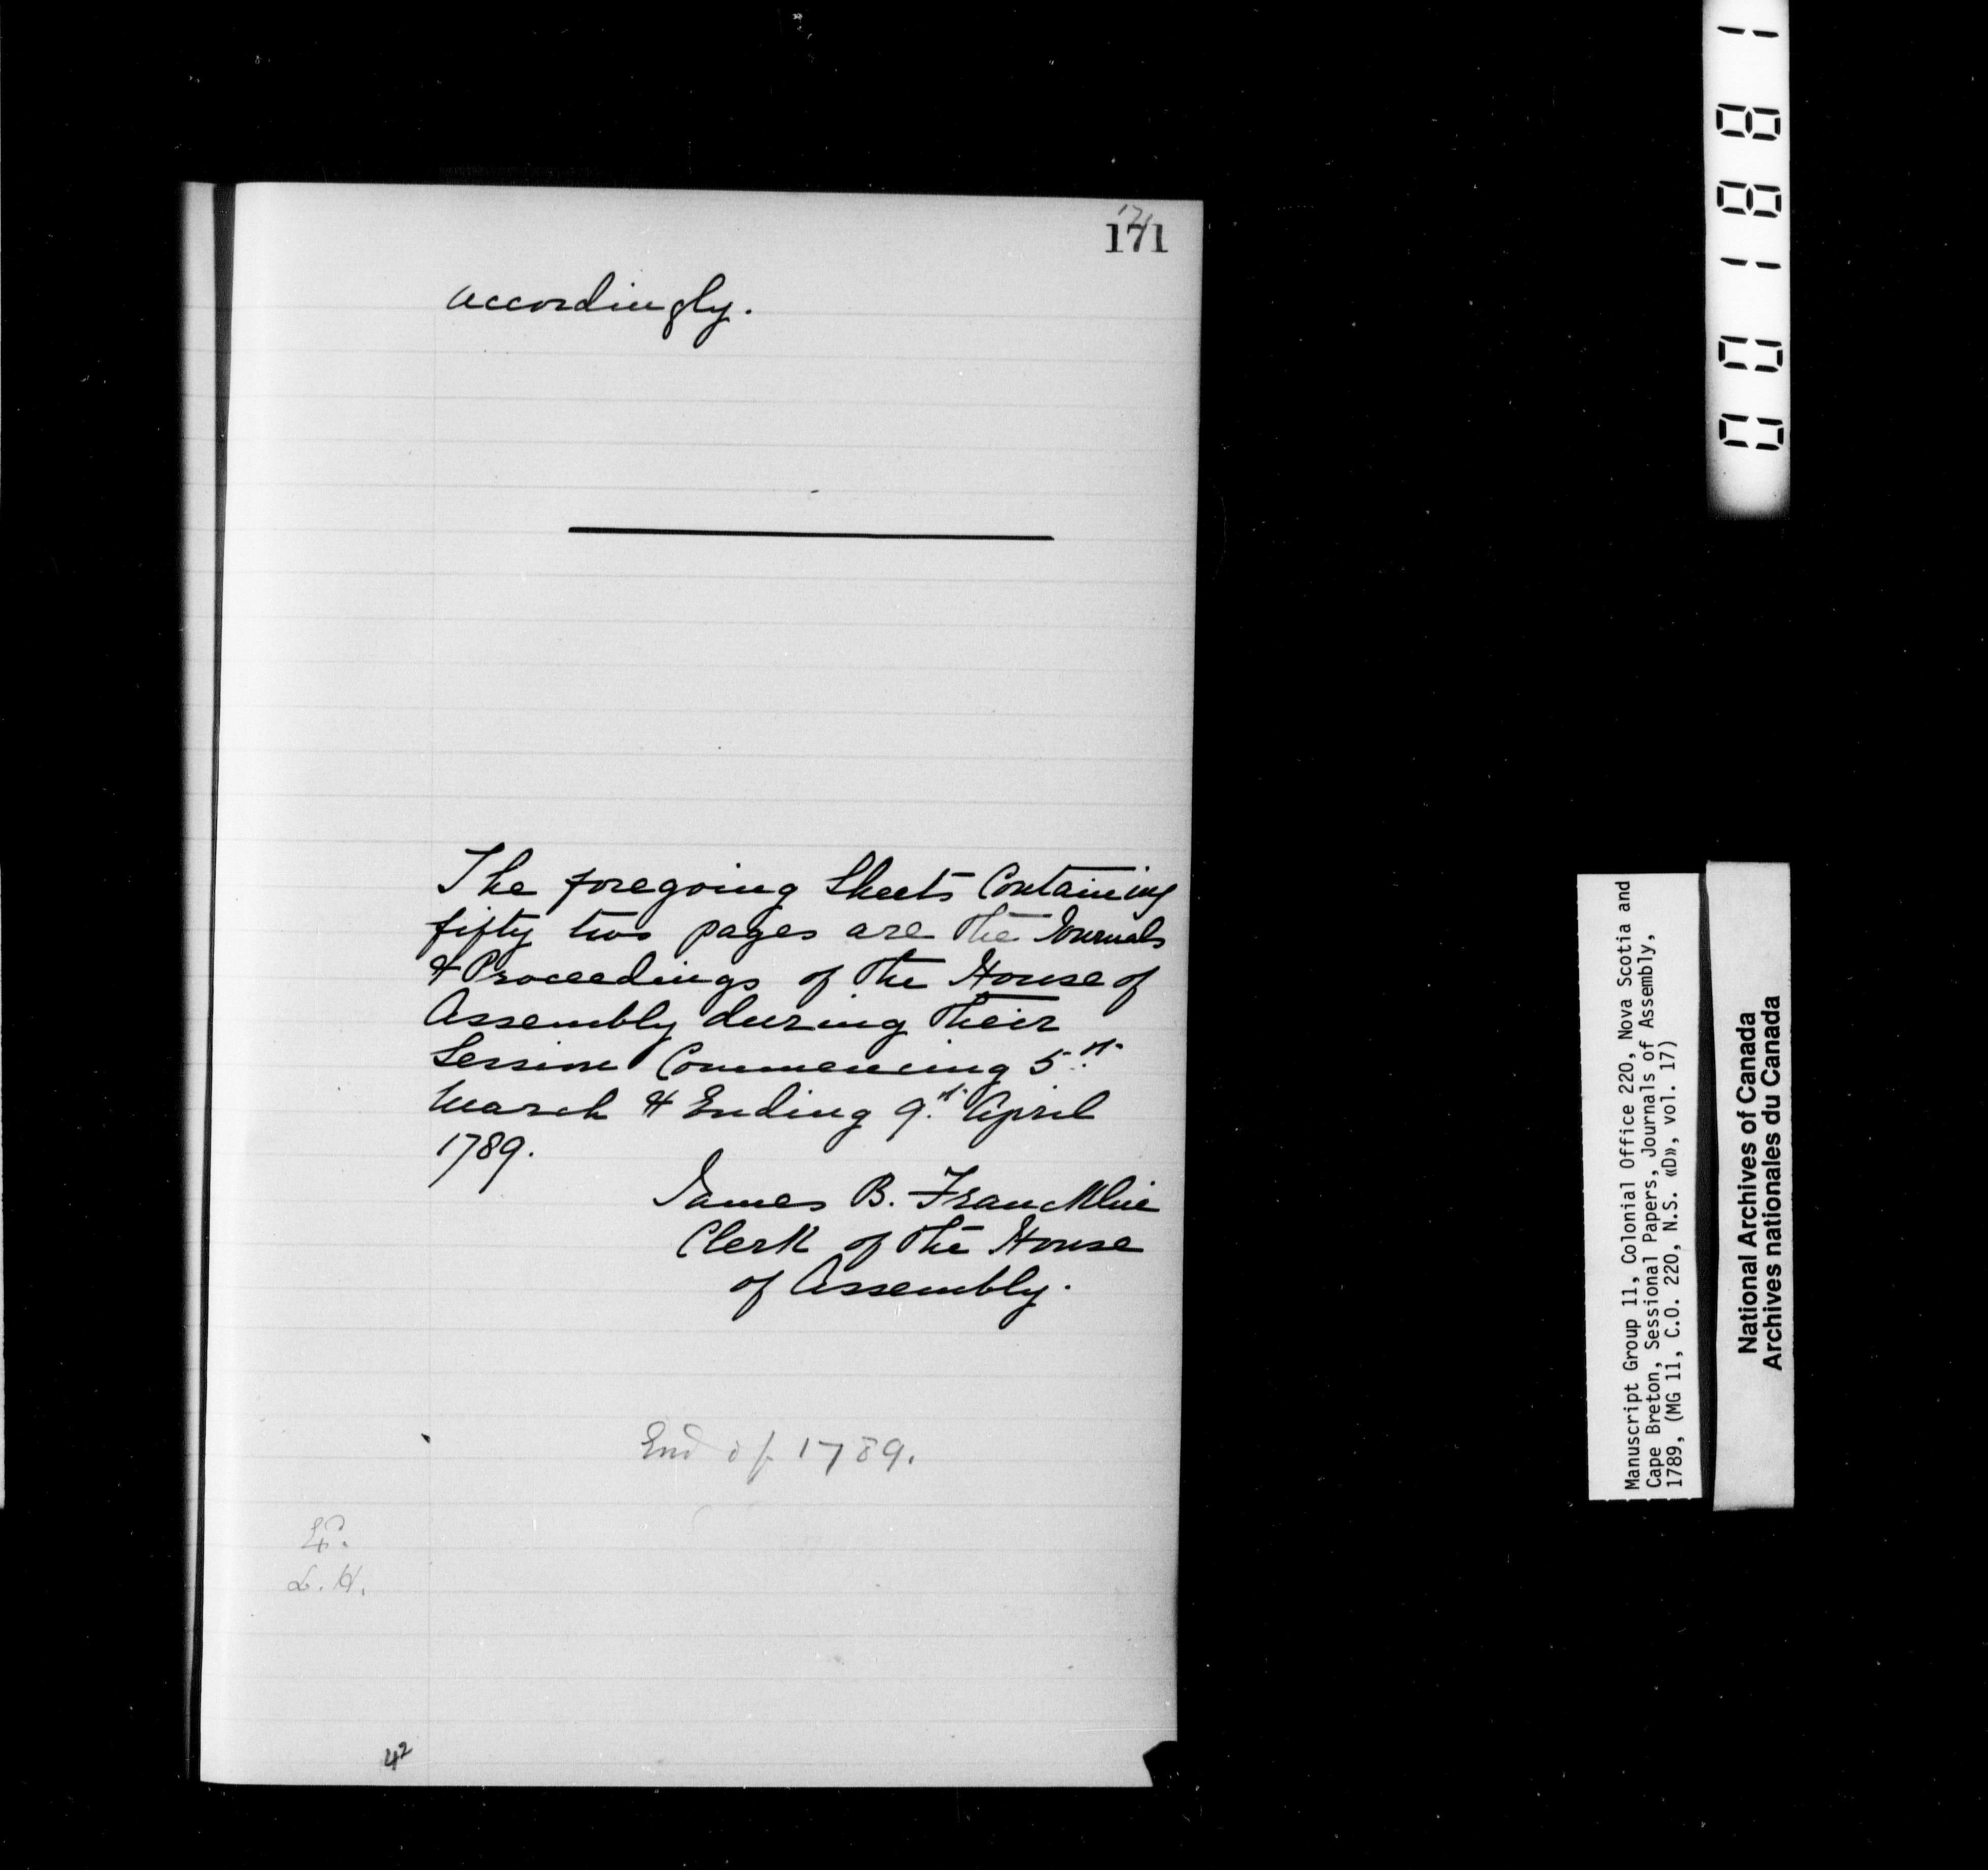 171
171
accordingly.
The foregoing Sheets Containing
fifty two pages are the Journals
& Proceedings of the House of
Assembly during their
Session Commencing 5th
March & Ending 9th April
1789.
James B. Francklin
Clerk of the House
of Assembly.
End of 1789.
L. H.
42
001881
Manuscript Group 11, Colonial Office 220, Nova Scotia and
Cape Breton, Sessional Papers, Journals of Assembly,
1789, (MG 11, C.O. 220, N.S. «D», vol. 17)
National Archives of Canada
Archives nationales du Canada